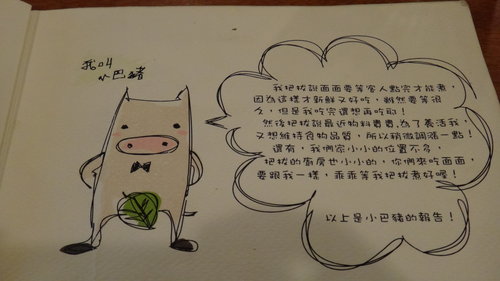 我叫
小巴豬
我把拔說面面要等客人點完才能煮，
因為這樣才新鮮又好吃，雖然要等很
久，但是我吃完還想再吃耶！
然後把拔說最近物料貴貴，為了養活我，
又想維持食物品質，所以稍微調漲一點！
還有，我們家小小的位置不多，
把拔的廚房也小小的，你們來吃面面，
要跟我一樣，乖乖等我把拔煮好喔！
以上是小巴豬的報告！